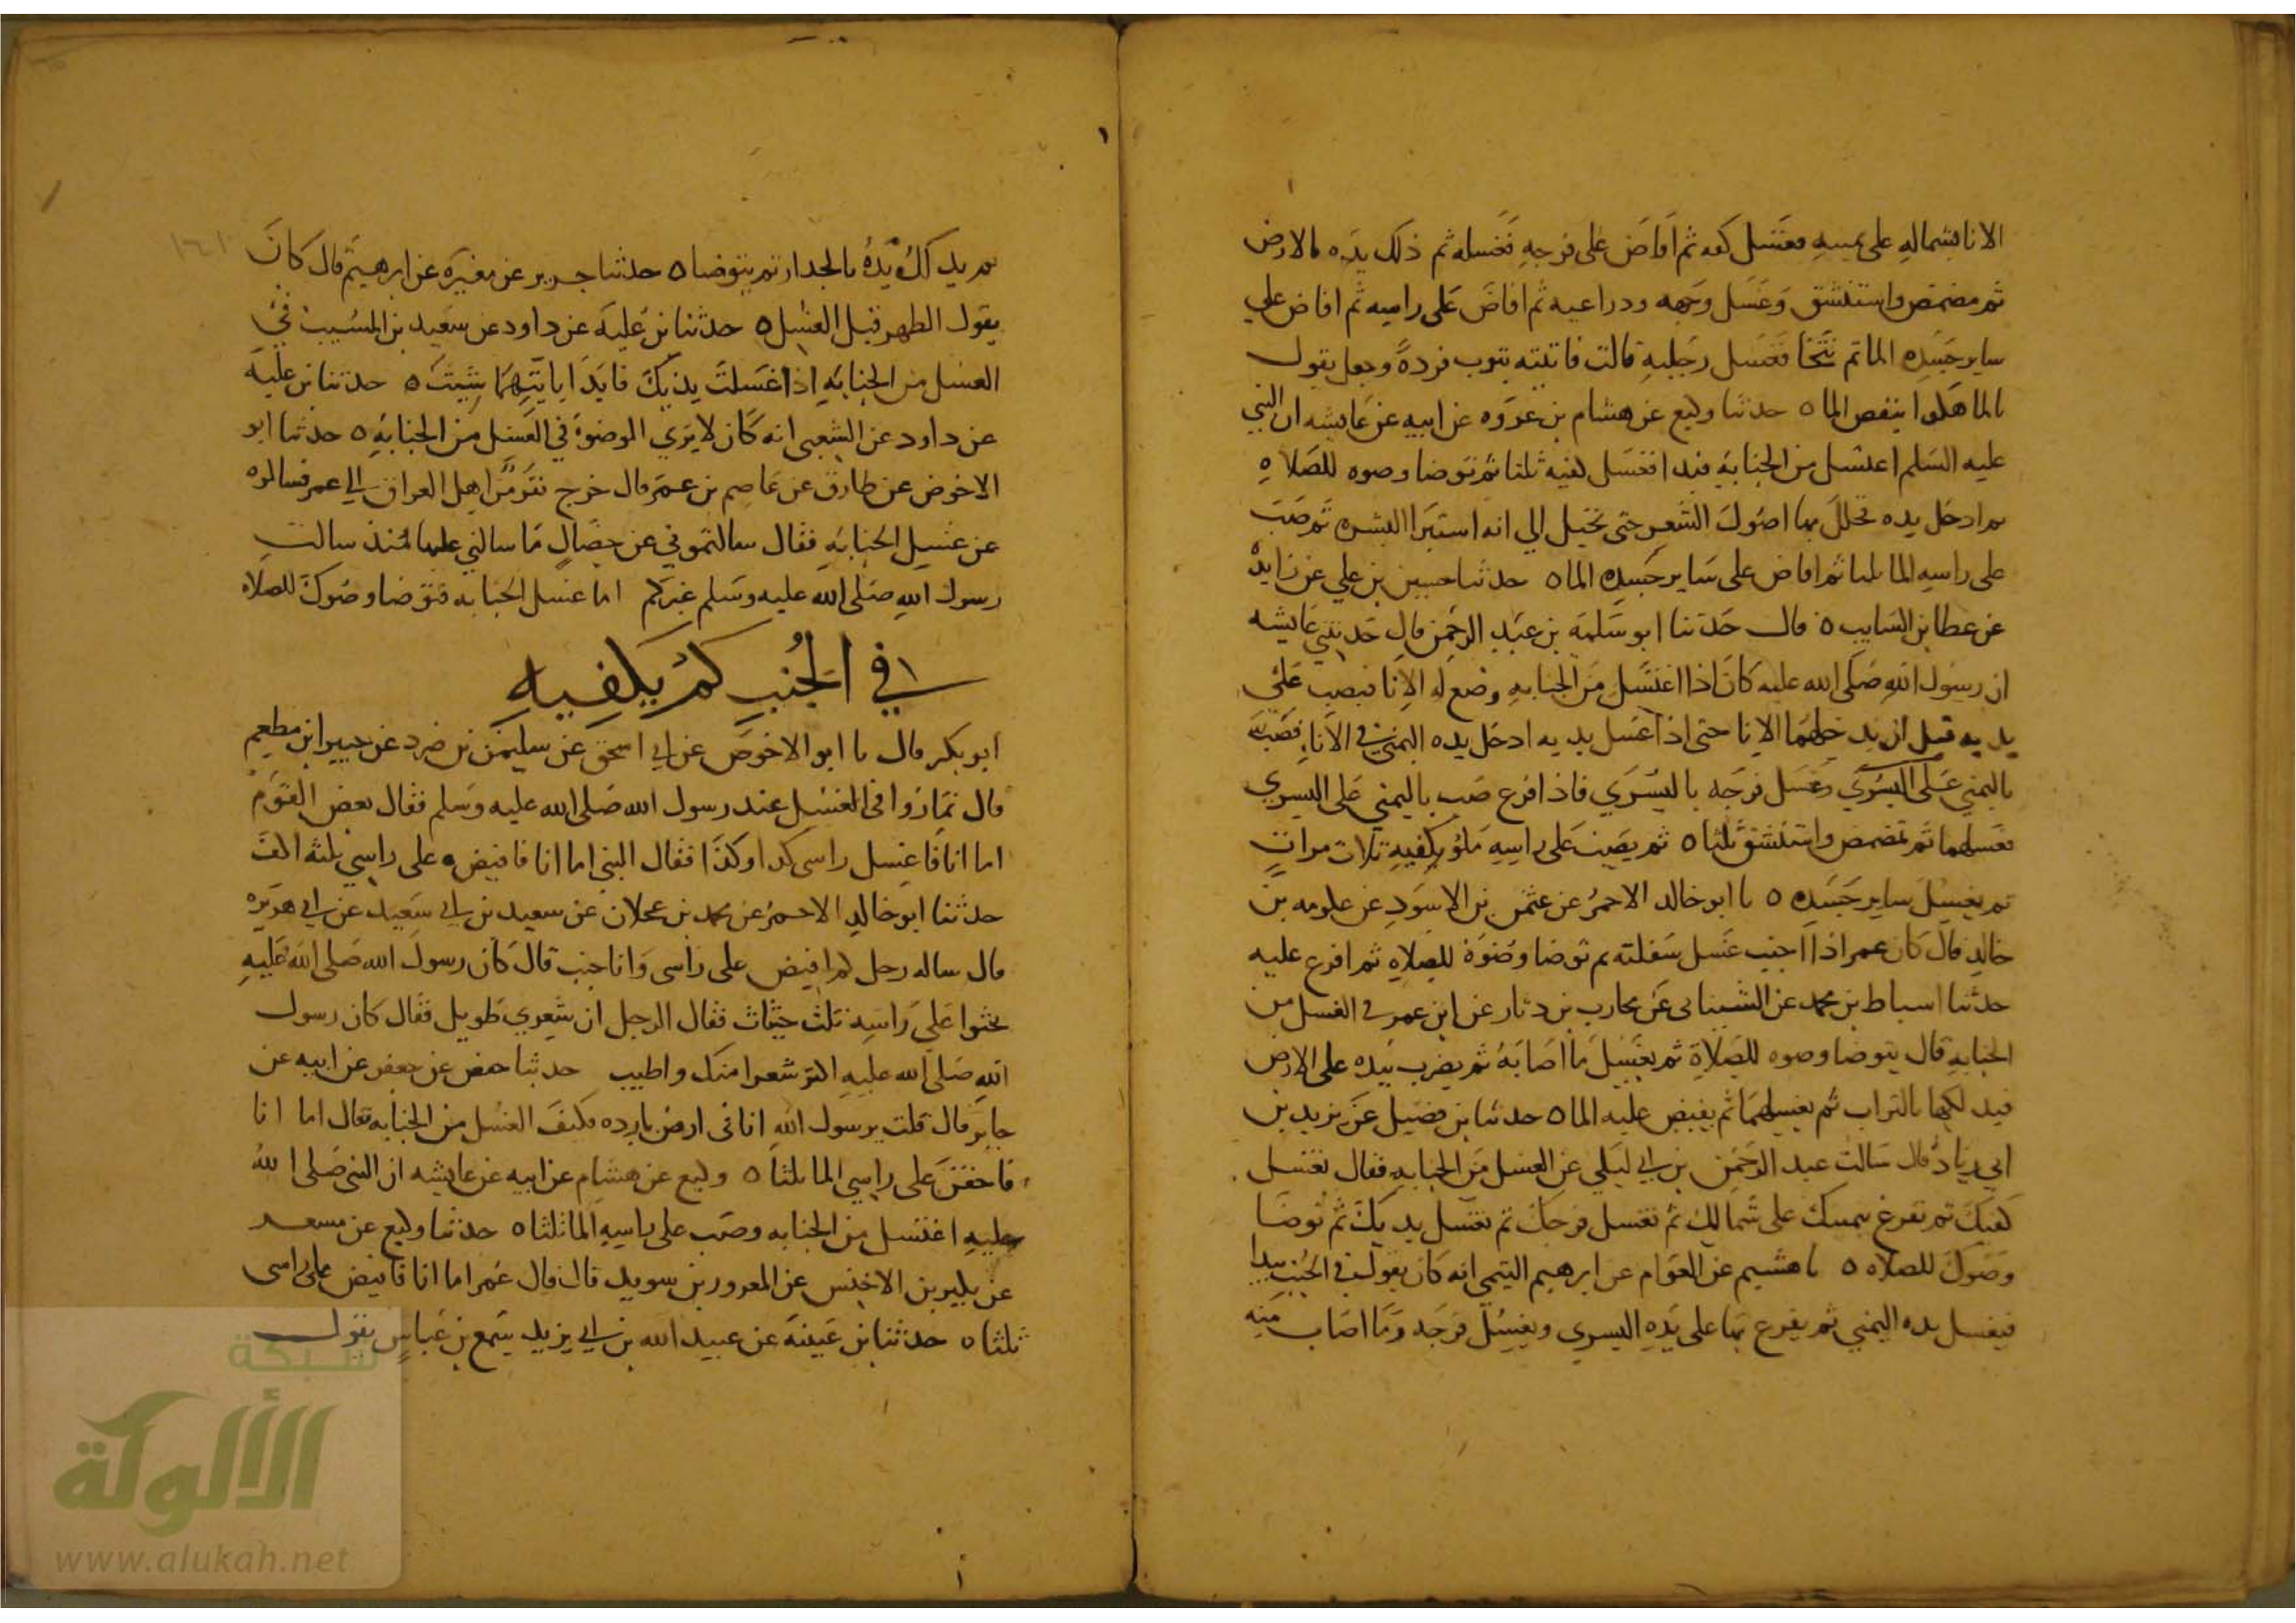 الانا بشماله على يمينه فغسل كفه ثم افاض على فرجه فغسله ثم دلك يده بالارض
ثم مضمض واستنشق وغسل وجهه ودراعيه ثم افاض على راسه ثم افاض على
ساير جسده الما ثم تنحا فغسل رجليه قالت فاتيته بثوب فرده وجعل يقول
بالما هكذا ينفض الما ٥ حدثنا وكيع عن هشام بن عروه عن ابيه عن عايشه ان النبي
عليه السلم اغتسل من الجنابه فبدا فغسل كفيه ثلثا ثم توضا وضوه للصلاه
ثم ادخل يده فخلل بها اصول الشعر حتى تخيل الي انه استبرا البشره ثم صب
على راسه الما ثلثا ثم افاض على ساير جسده الما ٥ حدثنا حسين بن علي عن زايدة
عن عطا بن السايب ٥ قال حدثنا ابو سلمة بن عبد الرحمن قال حدثتني عايشه
ان رسول الله صلى الله عليه كان اذا اغتسل من الجنابه وضع له الانا فيصب على
يديه قبل ان يدخلهما الانا حتى اذا غسل يديه ادخل يده اليمنى في الانا فصب
باليمني على اليسري وغسل فرجه باليسري فاذا افرغ صب باليمني على اليسري
فغسلهما ثم تمضمض واستنشق ثلثا ٥ ثم يصب على راسه ملو كفيه ثلاث مرات
ثم يغسل ساير جسده ٥ نا ابو خالد الاحمر عن عثمن بن الاسود عن عكرمه بن
خالد قال كان عمر اذا اجنب غسل سفلته ثم توضا وضوه للصلاه ثم افرغ عليه
حدثنا اسباط بن محمد عن الشيباني عن محارب بن دثار عن ابن عمر في الغسل من
الجنابه قال يتوضا وضوه للصلاة ثم يغسل ما اصابه ثم يضرب بيده على الارض
فيدلكها بالتراب ثم يغسلهما ثم يفيض عليه الما ٥ حدثنا بن فضيل عن يزيد بن
ابي زياد قال سالت عبد الرحمن بن ابي ليلي عن الغسل من الجنابه فقال تغسل
كفيك ثم تفرغ بيمينك على شمالك ثم تغسل فرجك ثم تغسل يديك ثم توضا
وضوك للصلاه ٥ نا هشيم عن العوام عن ابرهيم التيمي انه كان يقول في الجنب يبدا
فيغسل يده اليمني ثم يفرغ بها على يده اليسري ويغسل فرجه وما اصاب منه
ثم يدلك يده بالجدار ثم يتوضا ٥ حدثنا جرير عن مغيره عن ابرهيم قال كان
يقول الطهر قبل الغسل ٥ حدثنا بن علية عن داود عن سعيد بن المسيب في
الغسل من الجنابه اذا غسلت يديك فابدا بايتهما شيت ٥ حدثنا بن علية
عن داود عن الشعبي انه كان لا يري الوضوء في الغسل من الجنابه ٥ حدثنا ابو
الاحوص عن طارق عن عاصم بن عمر قال خرج نفر من اهل العراق الي عمر فسالوه
عن غسل الجنابه فقال سالتموني عن خصال ما سالني عليها منذ سالت
رسول الله صلى الله عليه وسلم غيركم اما غسل الجنابه فتوضا وضوك للصلاه
في الجنب كم يكفيه
ابو بكر قال نا ابو الاحوص عن ابي اسحق عن سليمن بن صرد عن جبير ابن مطعم
قال تماروا في الغسل عند رسول الله صلى الله عليه وسلم فقال بعض القوم
اما انا فاغسل راسى كذا وكذا فقال النبي اما انا فافيض على راسي ثلثه اكف
حدثنا ابو خالد الاحمر عن محمد بن عجلان عن سعيد بن ابي سعيد عن ابي هريره
قال ساله رجل كم افيض على راسي وانا جنب قال كان رسول الله صلى الله عليه
يحثوا على راسه ثلث حثيات فقال الرجل ان شعري طويل فقال كان رسول
الله صلى الله عليه اكثر شعرا منك واطيب حدثنا حفص عن جعفر عن ابيه عن
جابر قال قلت يرسول الله انا في ارض بارده فكيف الغسل من الجنابه فقال اما انا
فاحفن على راسي الما ثلثا ٥ وكيع عن هشام عن ابيه عن عايشه ان النبي صلى الله
عليه اغتسل من الجنابه وصب على راسه الما ثلثا ٥ حدثنا وكيع عن مسعر
عن بكير بن الاخنس عن المعرور بن سويد قال قال عمر اما انا فافيض على راسى
ثلثا ٥ حدثنا بن عيينة عن عبيد الله بن ابي يزيد سمع بن عباس يقول
شبكة
الألوكة
www.alukah.net